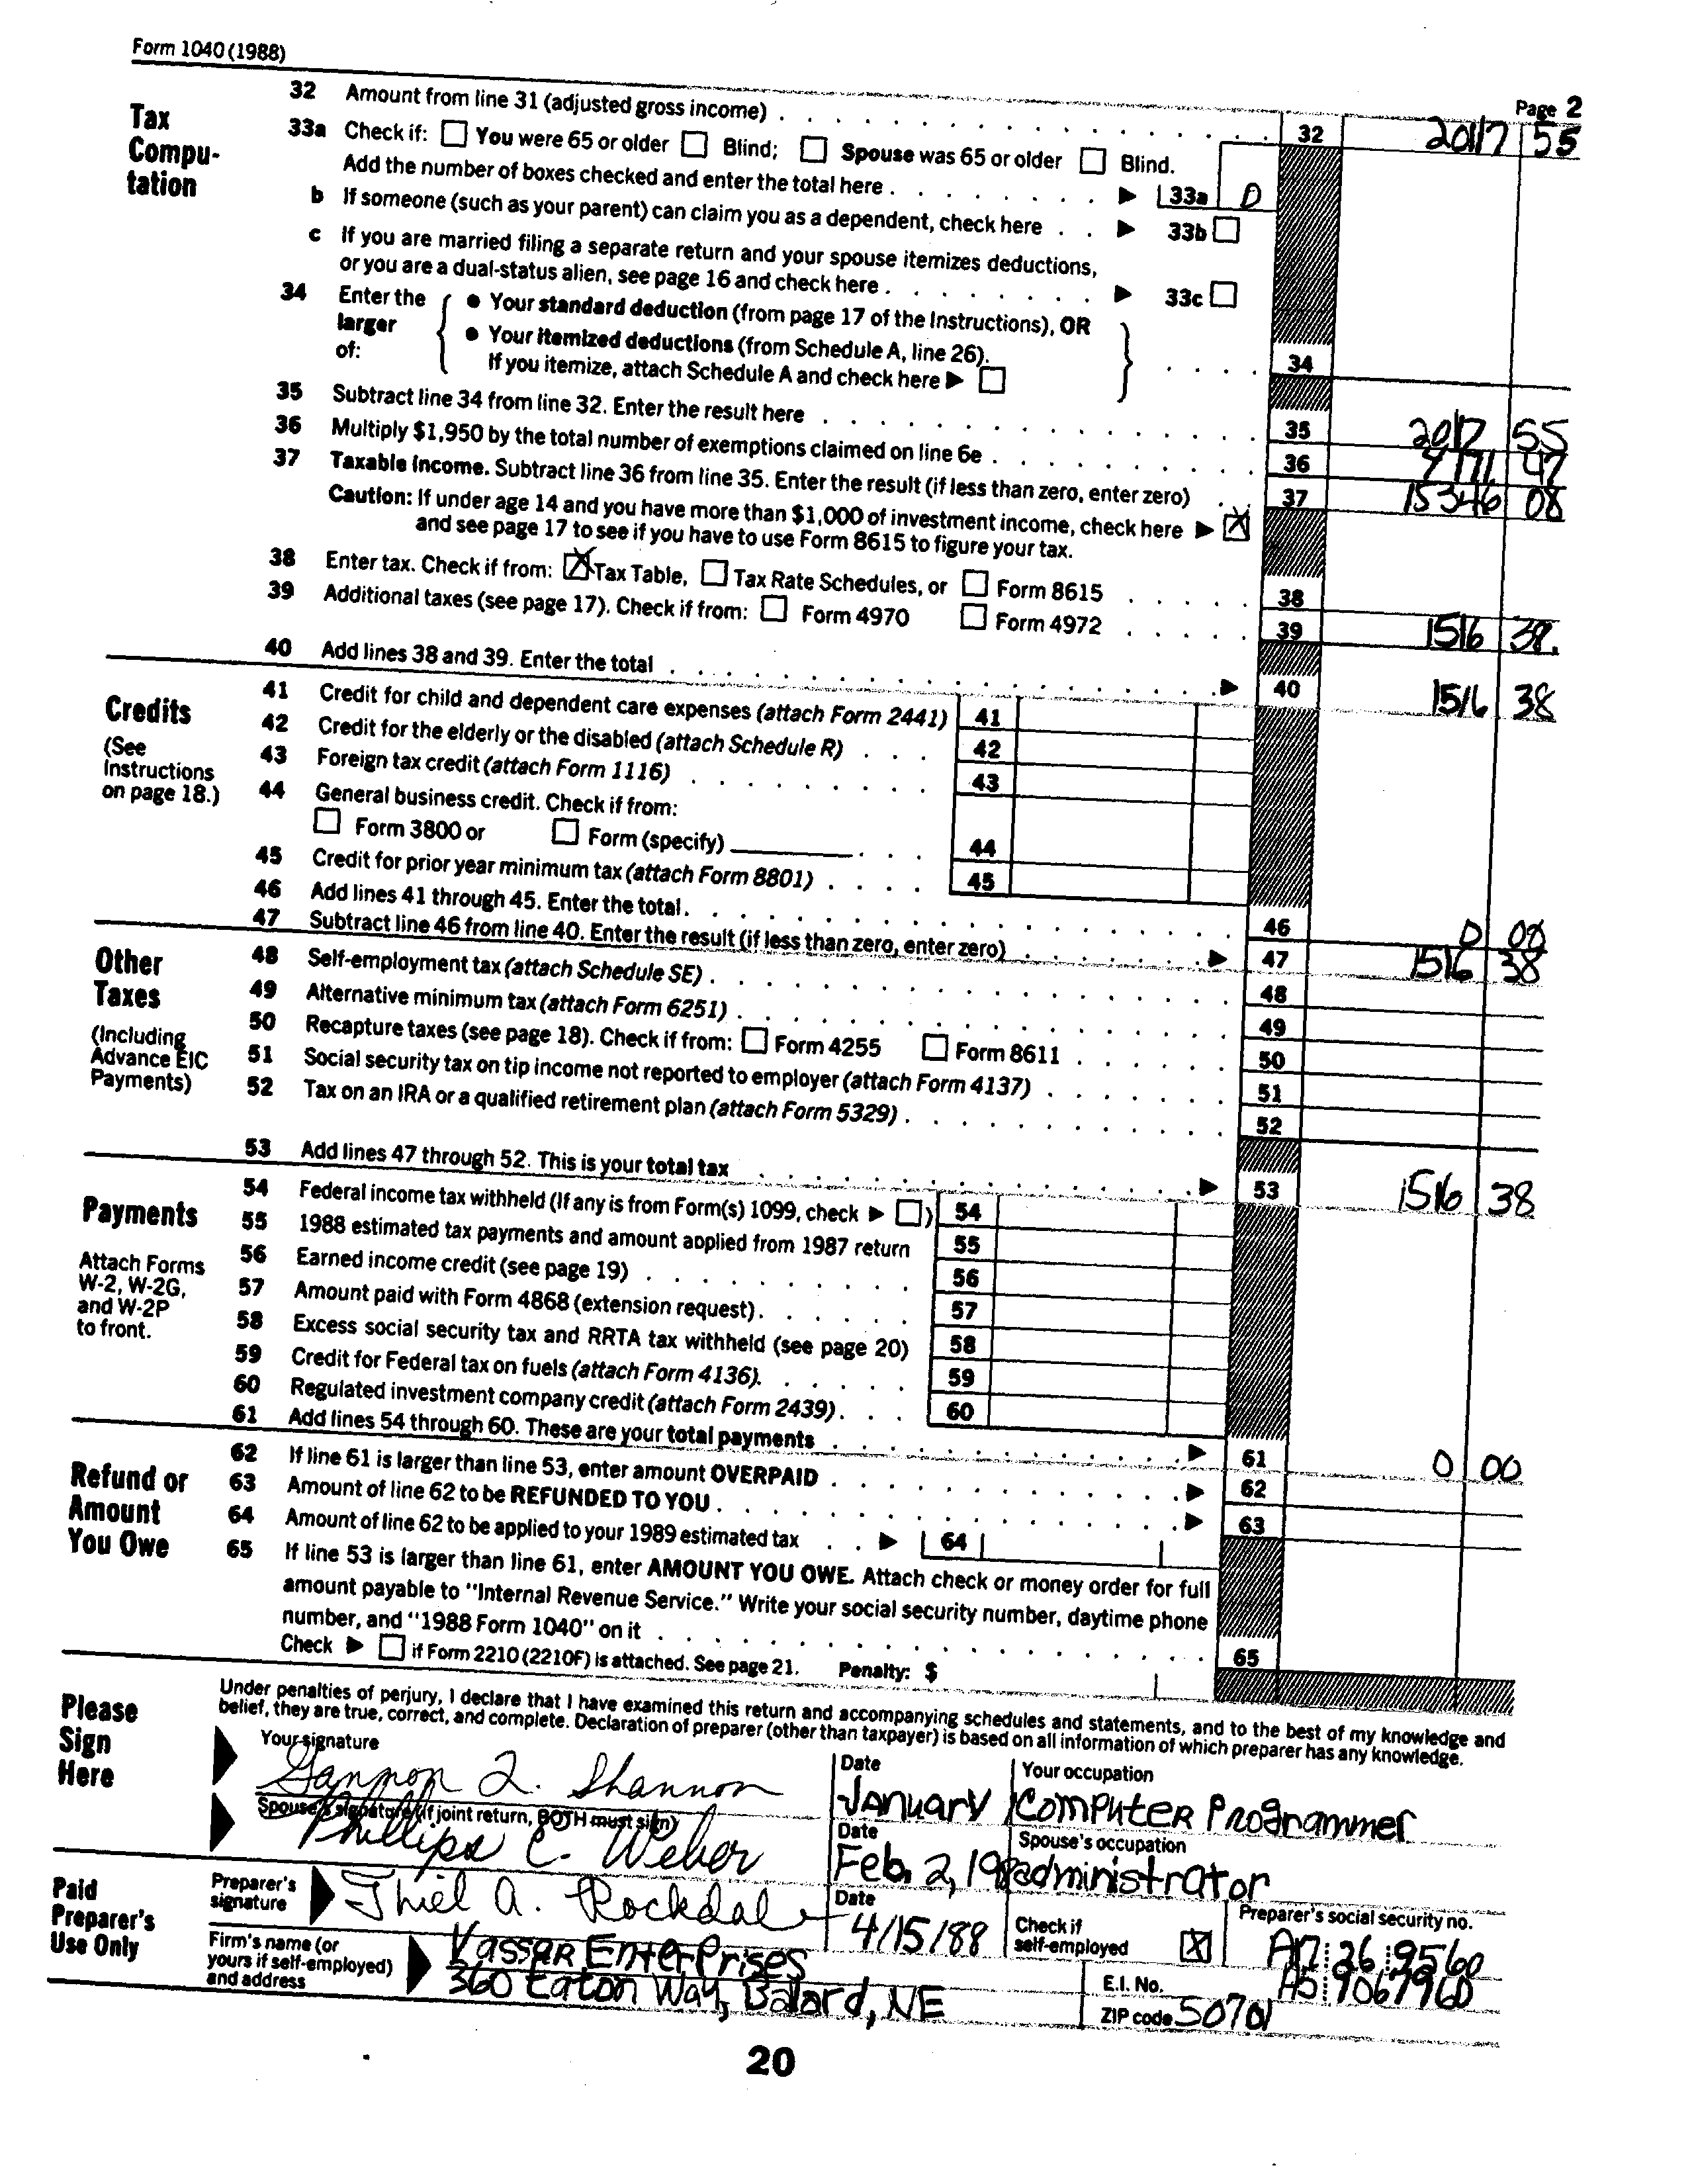 Form 1040 (1988)
Page 2
Tax Compu-tation
32 Amount from line 31 (adjusted gross income) 32 20117 55
33a Check if: You were 65 or older Blind; Spouse was 65 or older Blind.
Add the number of boxes checked and enter the total here 33a 0
b If someone (such as your parent) can claim you as a dependent, check here 33b
c If you are married filing a separate return and your spouse itemizes deductions,
or you are a dual-status alien, see page 16 and check here 33c
34 Enter the larger of: • Your standard deduction (from page 17 of the Instructions), OR
• Your itemized deductions (from Schedule A, line 26).
If you itemize, attach Schedule A and check here 34
35 Subtract line 34 from line 32. Enter the result here 35 55
36 Multiply $1,950 by the total number of exemptions claimed on line 6e 36 47
37 Taxable income. Subtract line 36 from line 35. Enter the result (if less than zero, enter zero) 37 15346 08
Caution: If under age 14 and you have more than $1,000 of investment income, check here X
and see page 17 to see if you have to use Form 8615 to figure your tax.
38 Enter tax. Check if from: X Tax Table, Tax Rate Schedules, or Form 8615 38
39 Additional taxes (see page 17). Check if from: Form 4970 Form 4972 39 1516 38.
40 Add lines 38 and 39. Enter the total 40 1516 38
Credits
(See Instructions on page 18.)
41 Credit for child and dependent care expenses (attach Form 2441) 41
42 Credit for the elderly or the disabled (attach Schedule R) 42
43 Foreign tax credit (attach Form 1116) 43
44 General business credit. Check if from:
Form 3800 or Form (specify) 44
45 Credit for prior year minimum tax (attach Form 8801) 45
46 Add lines 41 through 45. Enter the total 46 0 00
47 Subtract line 46 from line 40. Enter the result (if less than zero, enter zero) 47 1516 38
Other Taxes
(Including Advance EIC Payments)
48 Self-employment tax (attach Schedule SE) 48
49 Alternative minimum tax (attach Form 6251) 49
50 Recapture taxes (see page 18). Check if from: Form 4255 Form 8611 50
51 Social security tax on tip income not reported to employer (attach Form 4137) 51
52 Tax on an IRA or a qualified retirement plan (attach Form 5329) 52
53 Add lines 47 through 52. This is your total tax 53 1516 38
Payments
Attach Forms W-2, W-2G, and W-2P to front.
54 Federal income tax withheld (If any is from Form(s) 1099, check ) 54
55 1988 estimated tax payments and amount applied from 1987 return 55
56 Earned income credit (see page 19) 56
57 Amount paid with Form 4868 (extension request) 57
58 Excess social security tax and RRTA tax withheld (see page 20) 58
59 Credit for Federal tax on fuels (attach Form 4136) 59
60 Regulated investment company credit (attach Form 2439) 60
61 Add lines 54 through 60. These are your total payments 61 0 00
Refund or Amount You Owe
62 If line 61 is larger than line 53, enter amount OVERPAID 62
63 Amount of line 62 to be REFUNDED TO YOU 63
64 Amount of line 62 to be applied to your 1989 estimated tax 64
65 If line 53 is larger than line 61, enter AMOUNT YOU OWE. Attach check or money order for full
amount payable to "Internal Revenue Service." Write your social security number, daytime phone
number, and "1988 Form 1040" on it 65
Check if Form 2210 (2210F) is attached. See page 21. Penalty: $
Please Sign Here
Under penalties of perjury, I declare that I have examined this return and accompanying schedules and statements, and to the best of my knowledge and
belief, they are true, correct, and complete. Declaration of preparer (other than taxpayer) is based on all information of which preparer has any knowledge.
Your signature Date Your occupation
Gannon L. Shannon January Computer Programmer
Spouse's signature (if joint return, BOTH must sign) Date Spouse's occupation
Phillipa C. Weber Feb. 2, administrator
Paid Preparer's Use Only
Preparer's signature Thiel A. Rockdale Date 4/15/88 Check if self-employed X Preparer's social security no. 26 9560
Firm's name (or yours if self-employed) and address Vassar Enterprises E.I. No. A5 9067960
360 Eaton Way, Balard, NE ZIP code 50701
20